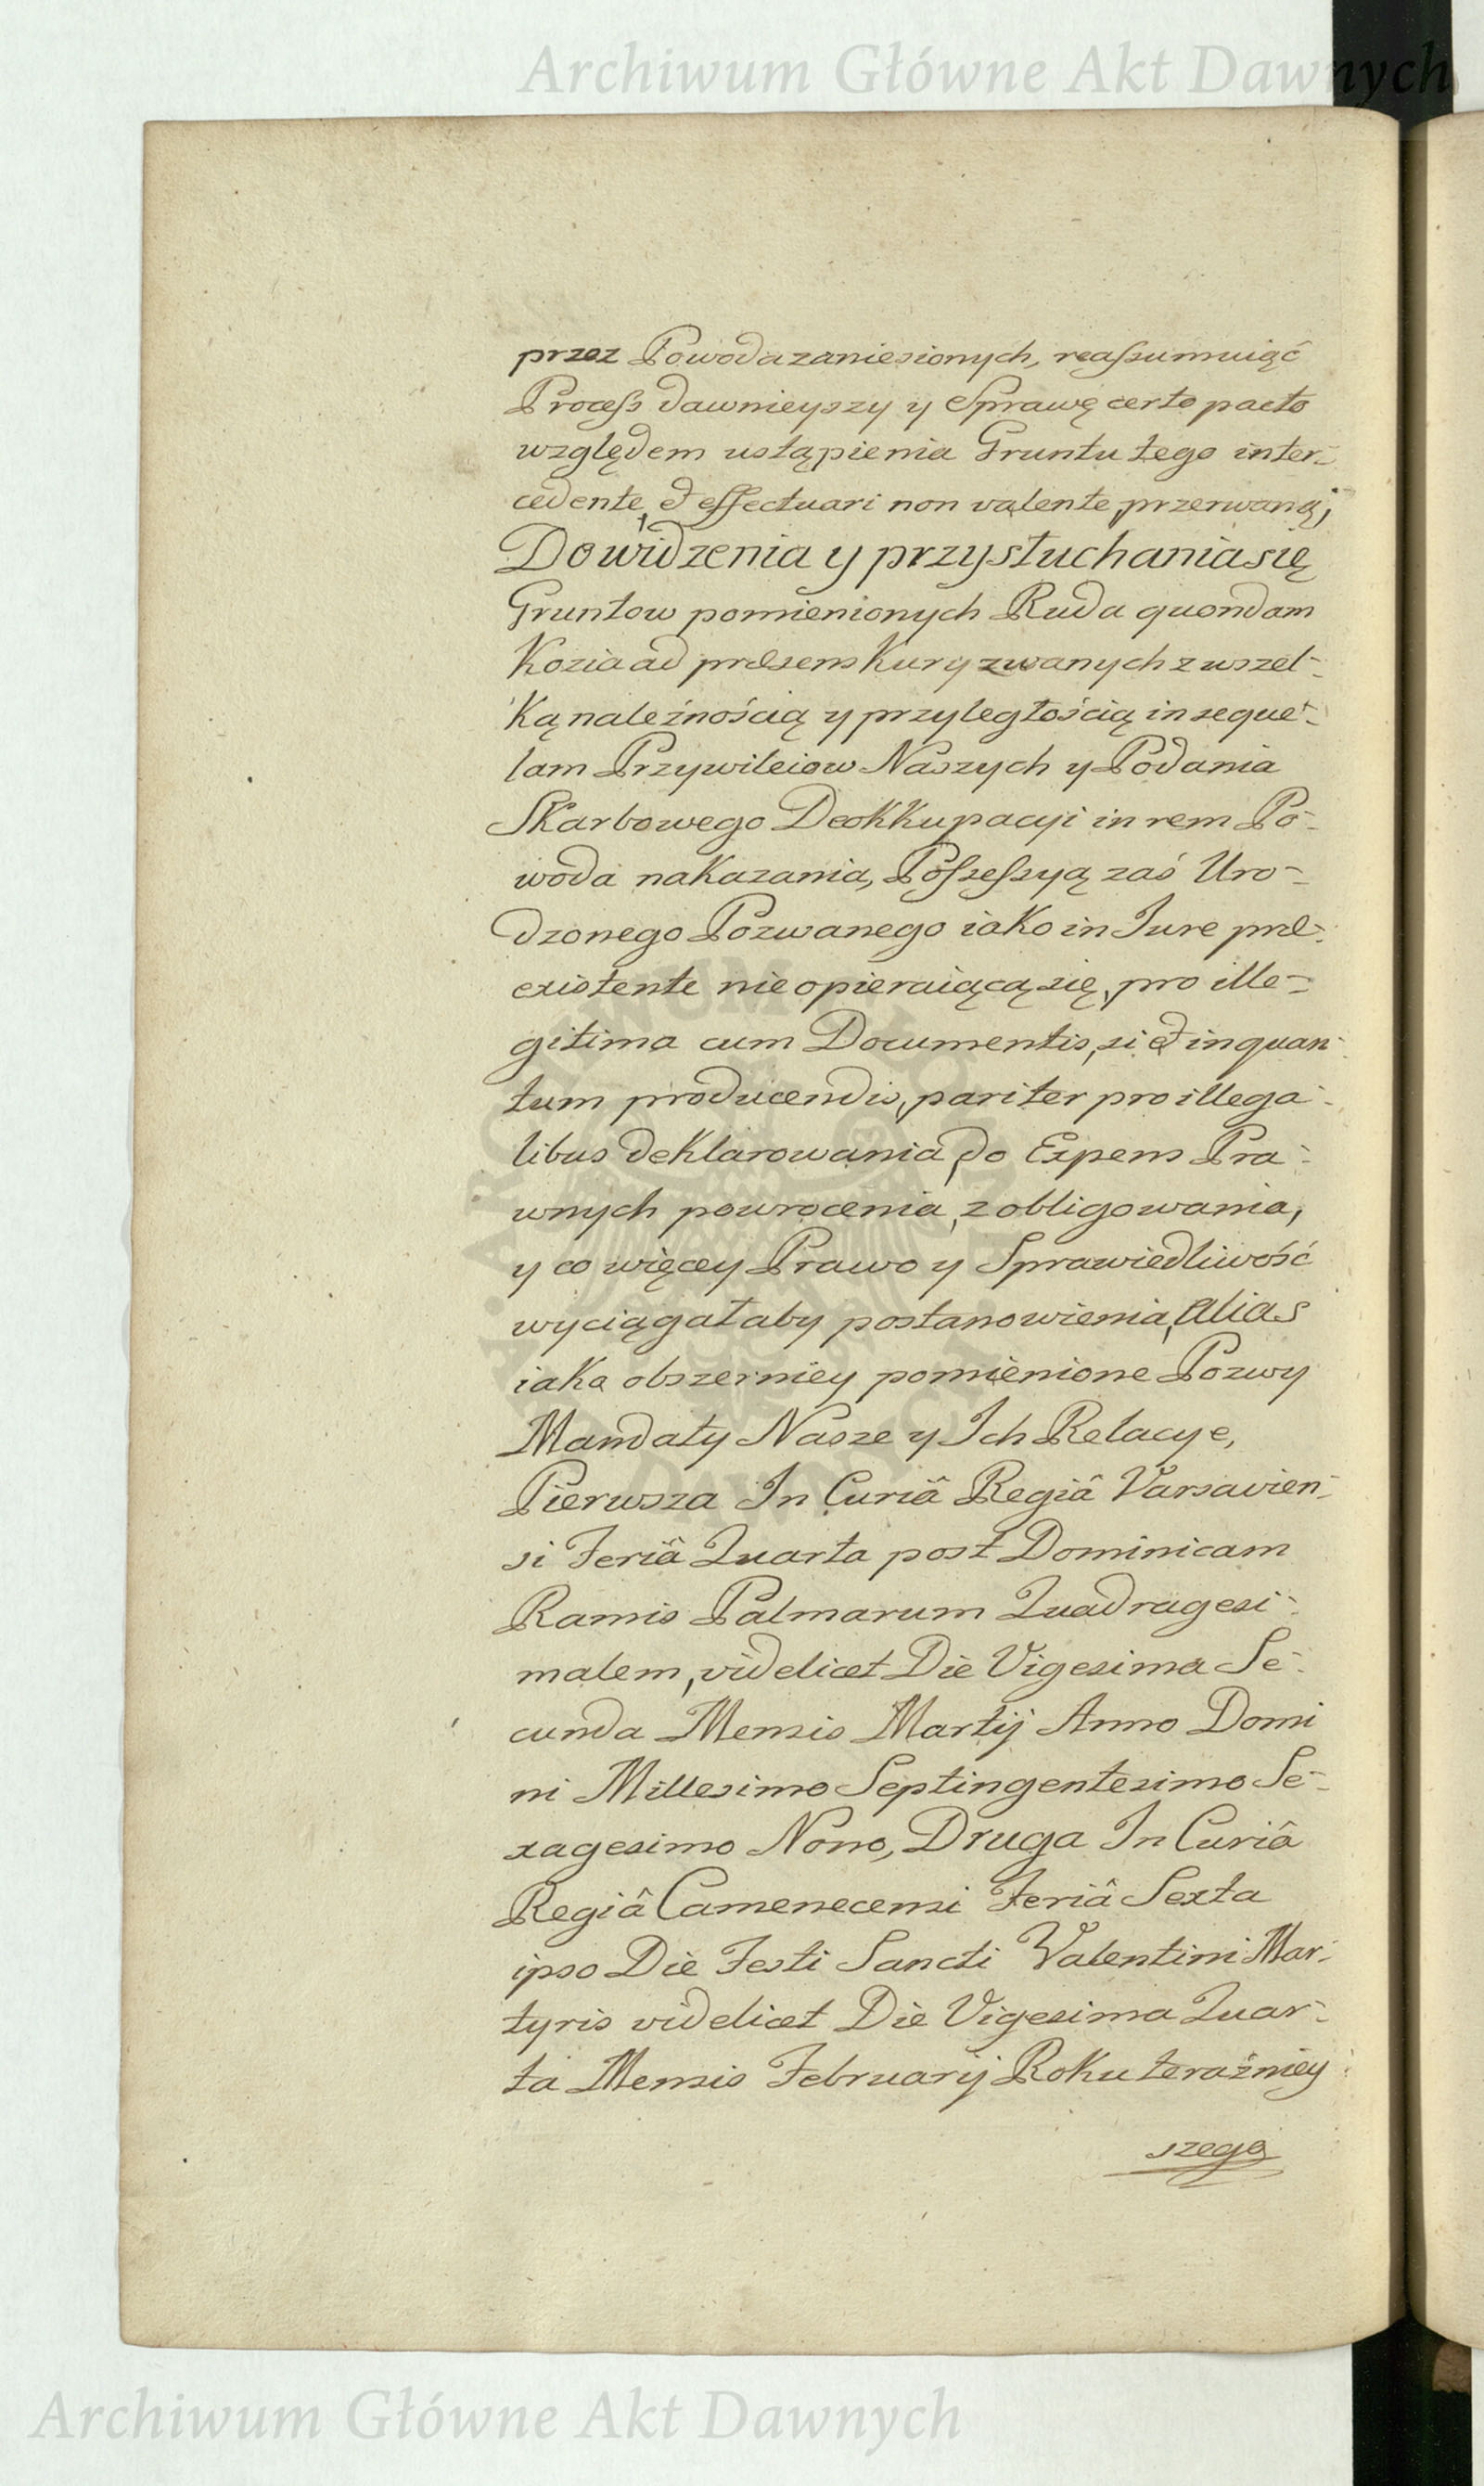 Archiwum Główne Akt Dawnych
przez Powoda zaniesionych, reaſsumuiąć
Proceſs dawnieyszy y Sprawę certo pacto
względem ustąpienia Gruntu tego inter-
cedente, et effectuari non valente, przerwaną;
Do widzenia y przysłuchania się
Gruntow pomienionych Ruda quondam
Kozia ad præsens Kury zwanych z wszel-
ką należnością y przyległością in seque-
lam Przywileiow Naszych y Podania
Skarbowego Deokkupacyi in rem Po-
woda nakazania, Poſseſsyą zaś Uro-
dzonego Pozwanego iako in Iure præ-
existente nie opieraiącą się, pro ille-
gitima cum Documentis, si et in quan-
tum producendis, pariter pro illega-
libus deklarowania, do Expens Pra-
wnych powrocenia, zobligowania,
y co więcey Prawo y Sprawiedliwość
wyciągałaby postanowienia, alias
iako obszerniey pomienione Pozwy
Mandaty Nasze y Ich Relacye,
Pierwsza In Curiâ Regiâ Varsavien-
si Feriâ Quarta post Dominicam
Ramis Palmarum Quadragesi-
malem, videlicet Die Vigesima Se-
cunda Mensis Martij Anno Domi
ni Millesimo Septingentesimo Se-
xagesimo Nono, Druga In Curiâ
Regiâ Camenecensi Feriâ Sexta
ipso Die Festi Sancti Valentini Mar-
tyris videlicet Die Vigesima Quar-
ta Mensis Februarij Roku teraźniey
szego
Archiwum Główne Akt Dawnych